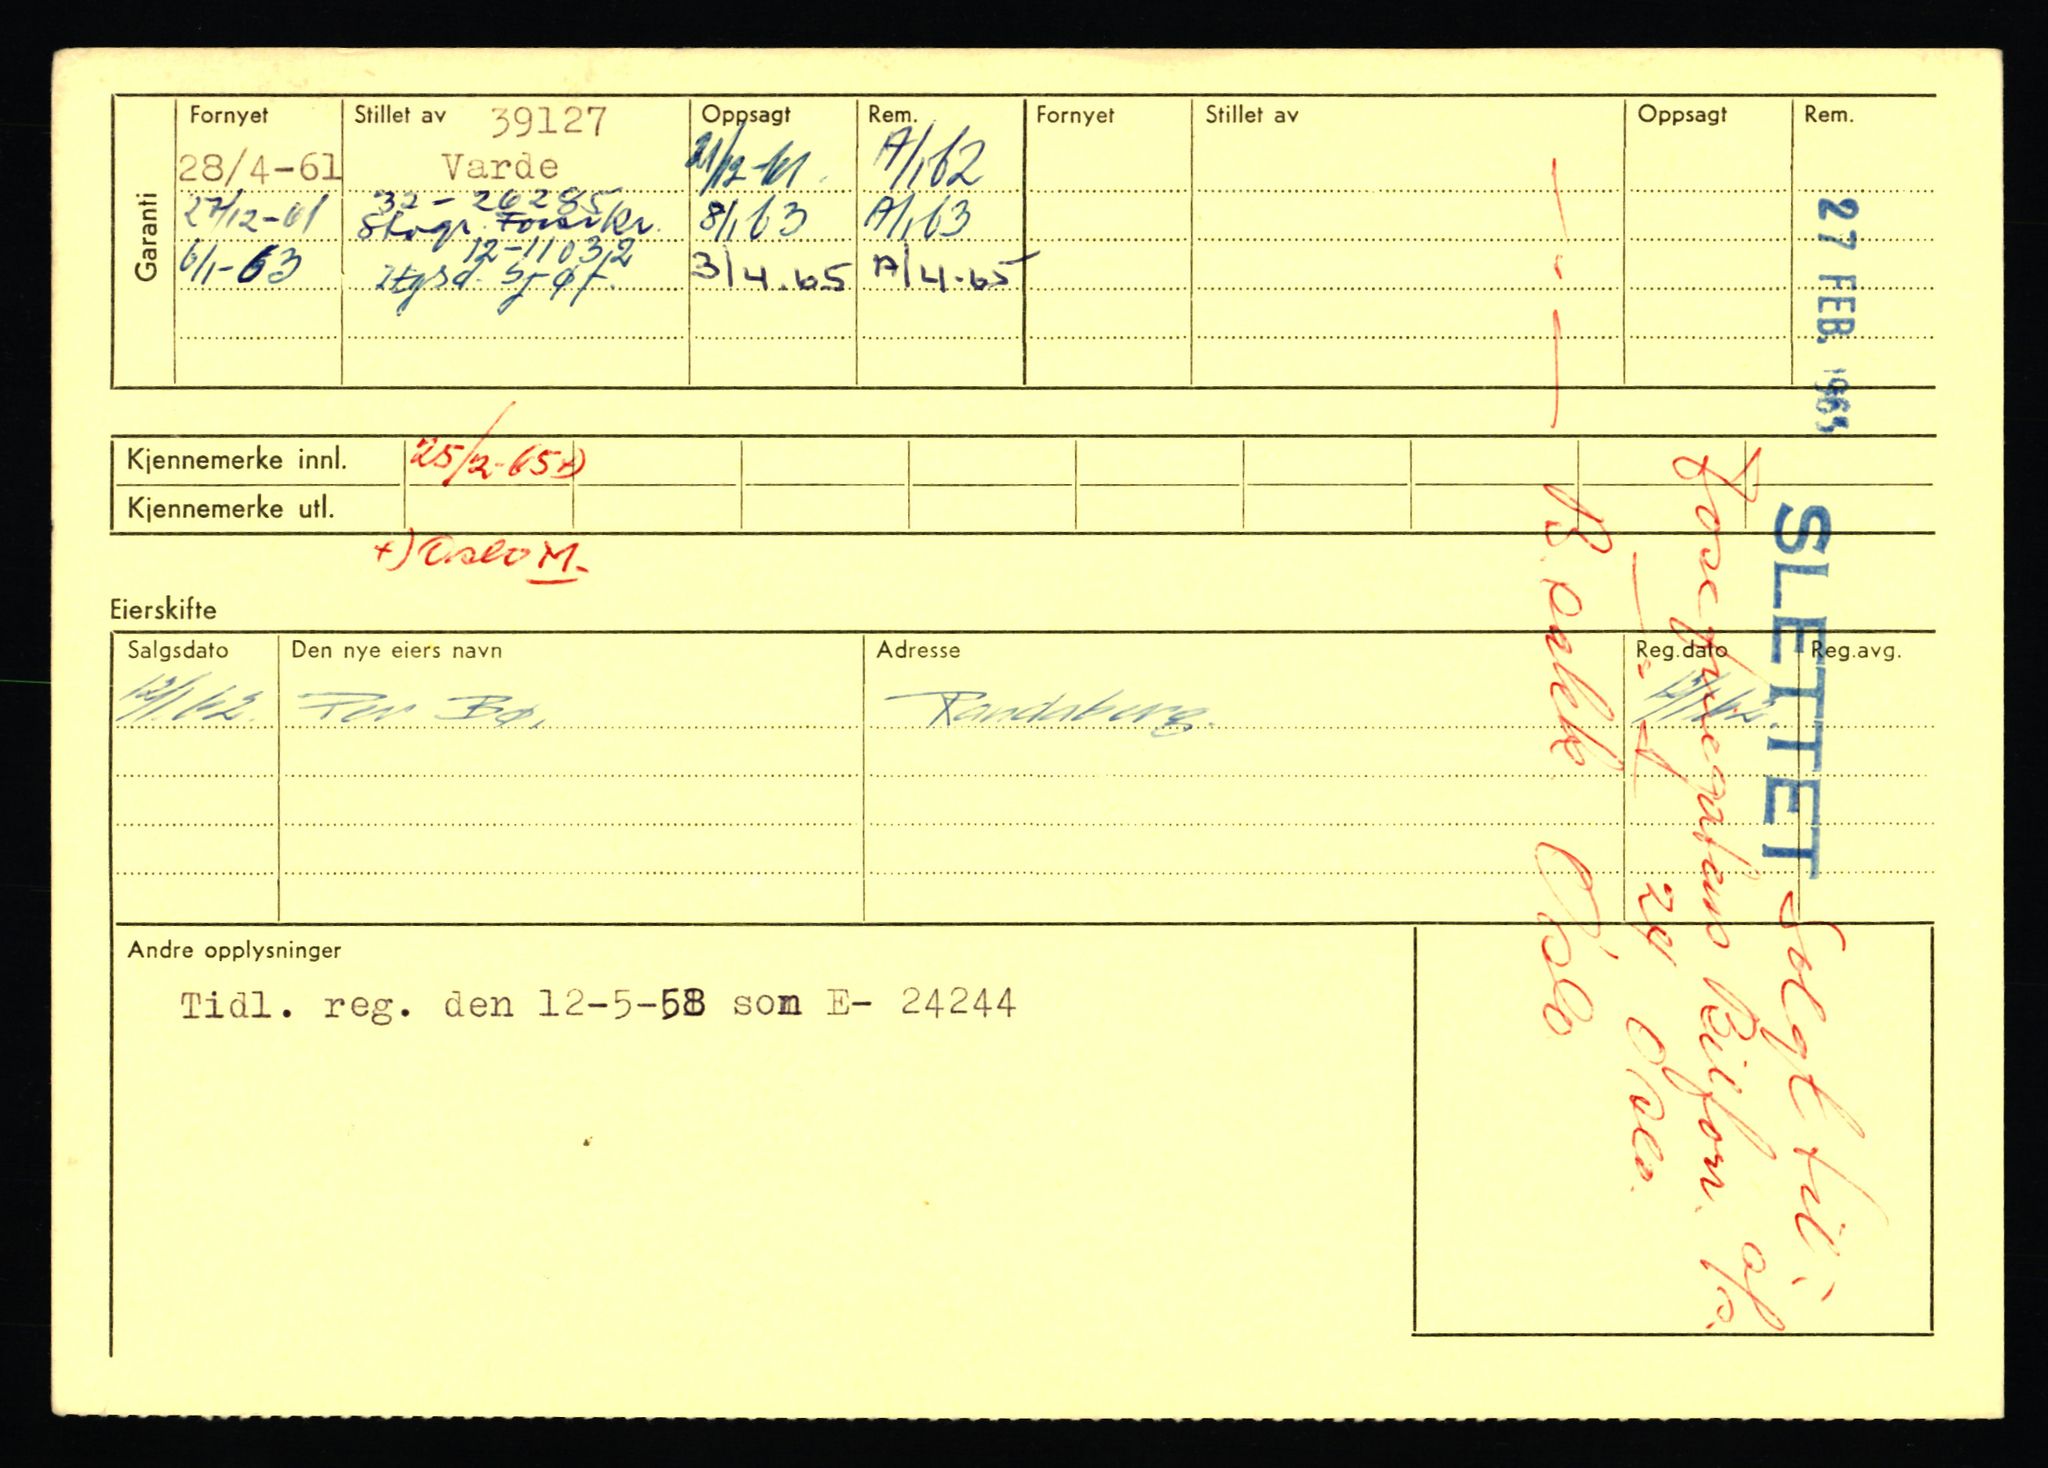 Garanti
Fornyet Stillet av 39127 Oppsagt Rem. Fornyet Stillet av Oppsagt Rem.
28/4-61 Varde 21/12-61. A/1 62
27/12-61 32-26285 8/1 63 A/1 63
6/1-63 12-11032 3/4.65 A/4.65
Kjennemerke innl. 25/2-65
Kjennemerke utl.
+) Oslo M.
Eierskifte
Salgsdato Den nye eiers navn Adresse Reg.dato Reg.avg.
12/1 62. Per Bø. Randaberg.
Andre opplysninger
Tidl. reg. den 12-5-58 som E- 24244
27 FEB. 1965
SLETTET
Solgt til:
29 Oslo.
Oslo